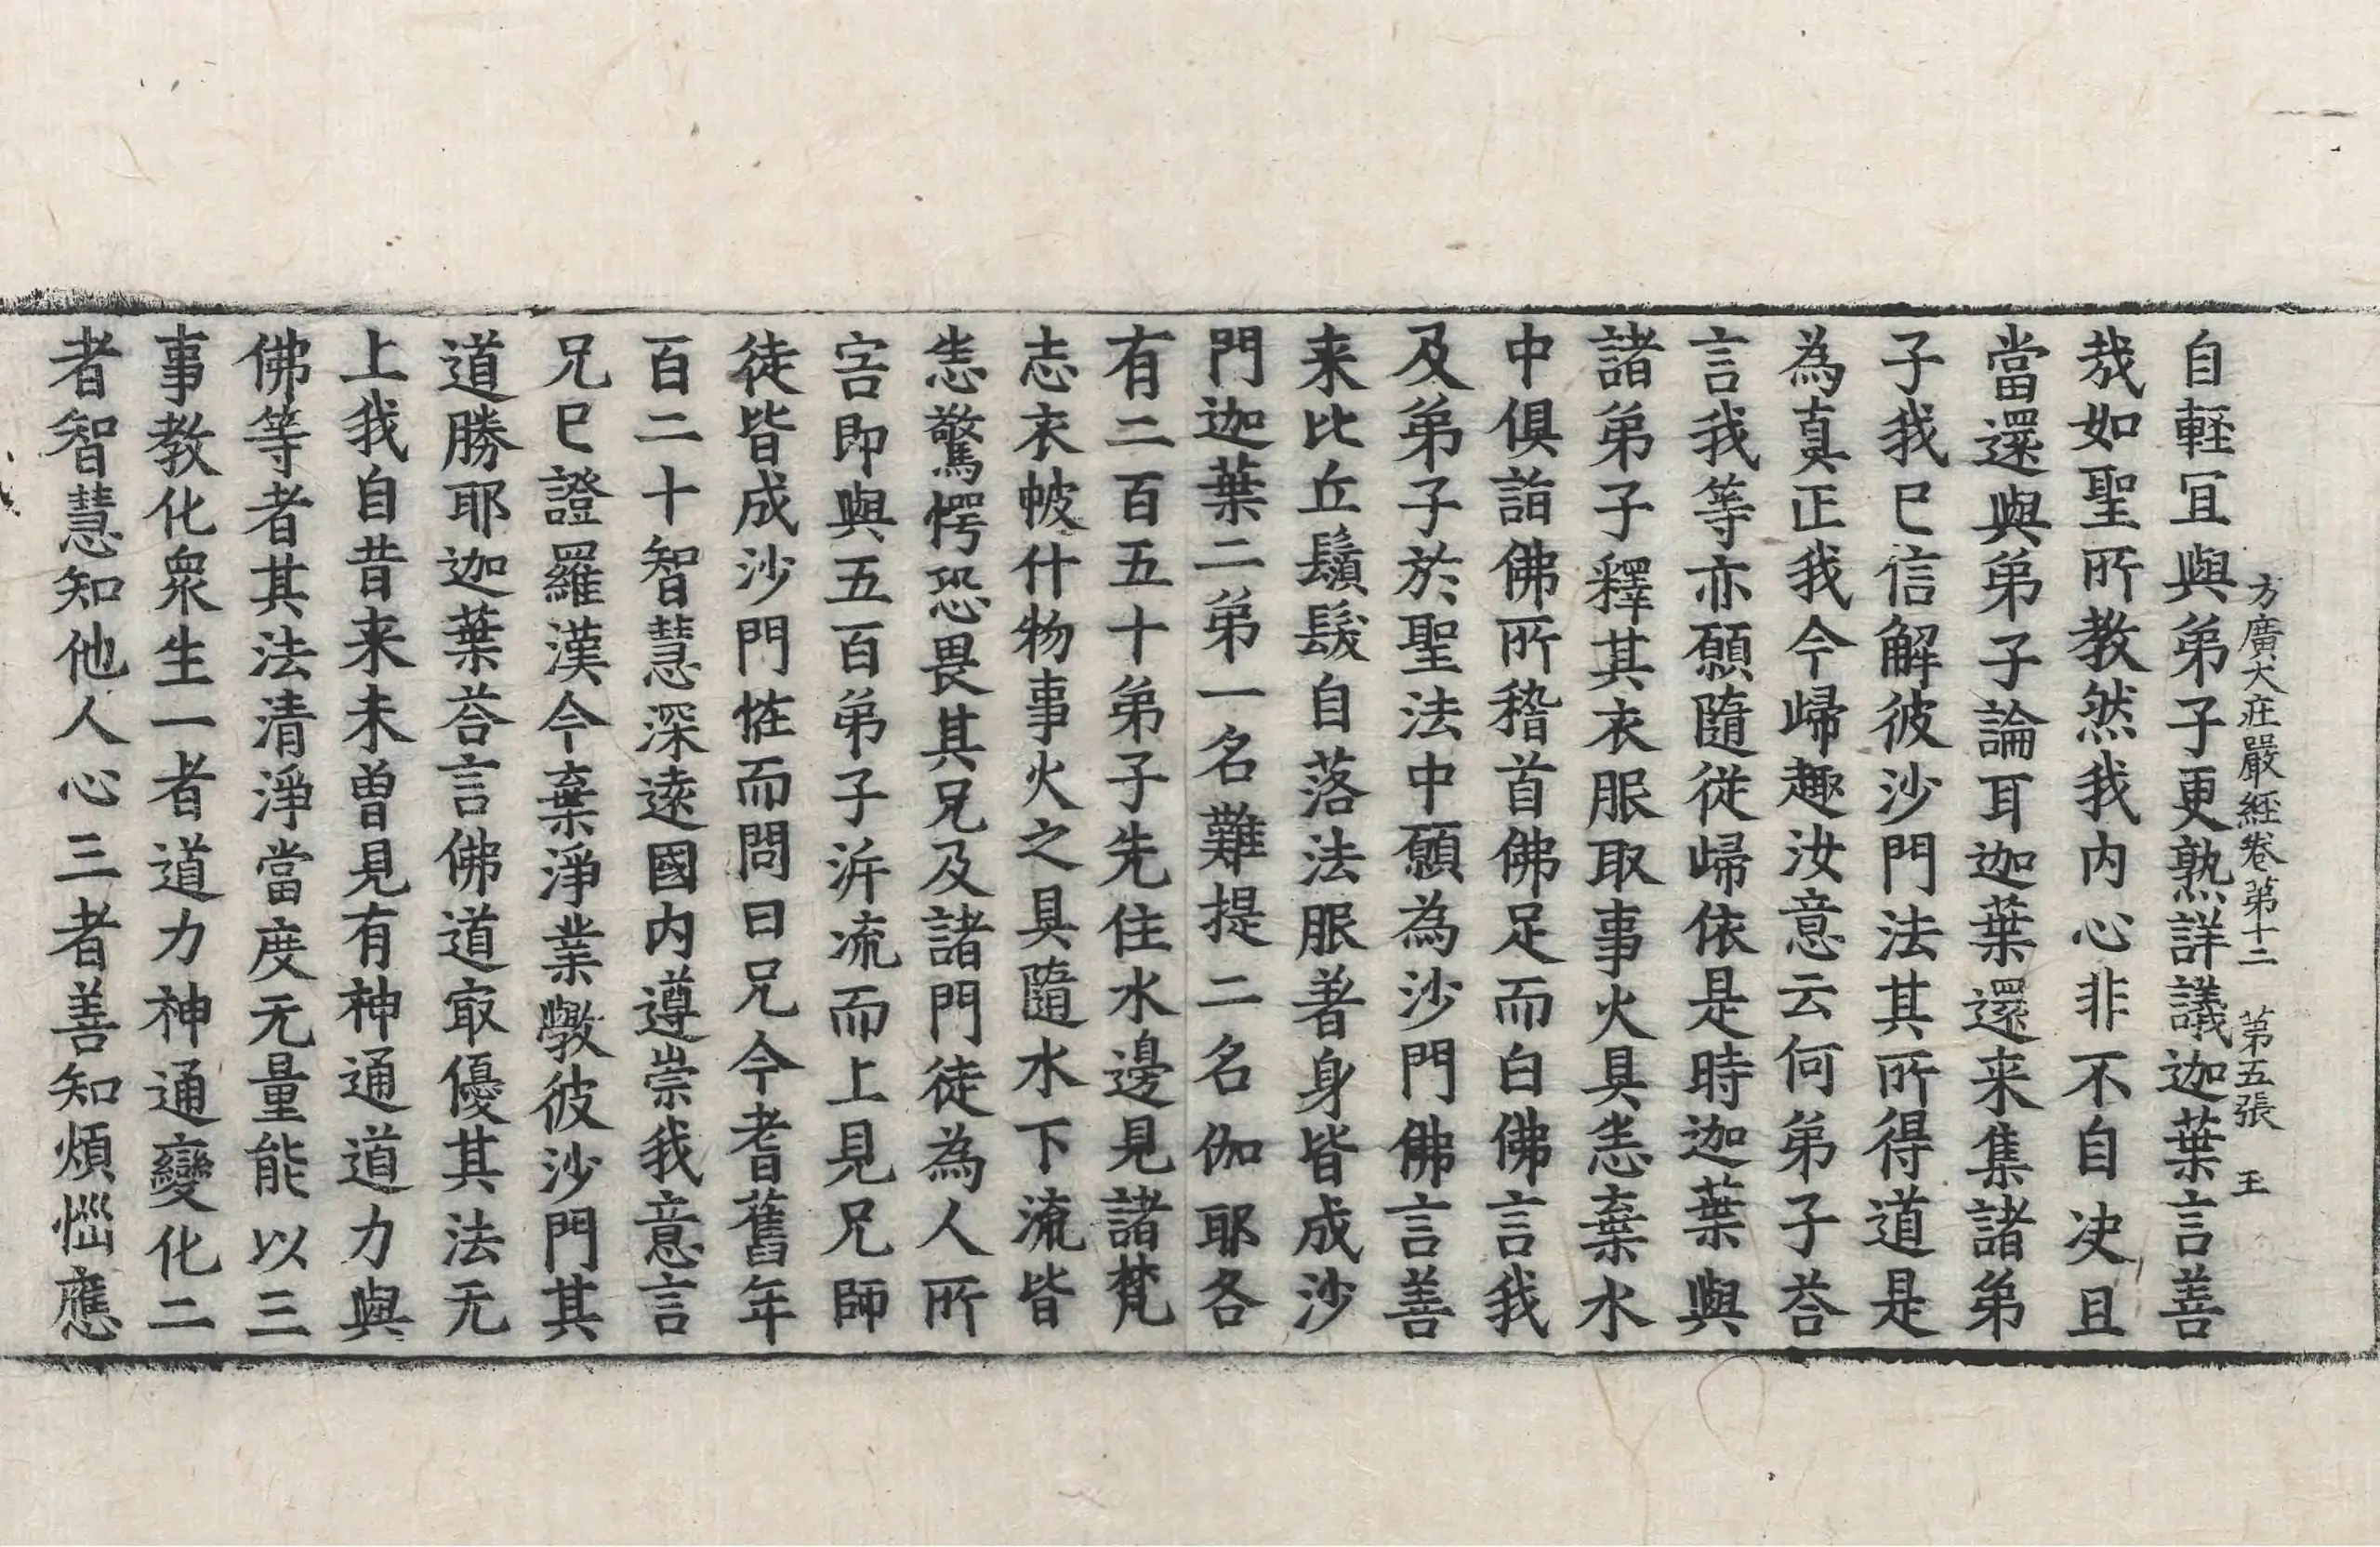 方廣大莊嚴經卷第十二 第五張 王
自輕冝與弟子更熟詳議迦葉言善
㢤如聖所教然我内心非不自决且
當還與弟子論耳迦葉還来集諸弟
子我已信解彼沙門法其所得道是
為真正我今歸趣汝意云何弟子荅
言我等亦願隨從歸依是時迦葉與
諸弟子釋其衣服取事火具恙棄水
中俱詣佛所稽首佛足而白佛言我
及弟子於聖法中願為沙門佛言善
来比丘鬚髮自落法服著身皆成沙
門迦葉二弟一名難提二名伽耶各
有二百五十弟子先住水邊見諸梵
志衣帔什物事火之具隨水下流皆
恙驚愕恐畏其兄及諸門徒為人所
害即與五百弟子泝流而上見兄師
徒皆成沙門恠而問曰兄今耆舊年
百二十智慧深遠國内遵崇我意言
兄已證羅漢今棄淨業斆彼沙門其
道勝耶迦葉荅言佛道㝡優其法无
上我自昔来未曽見有神通道力與
佛等者其法清淨當度无量能以三
事教化衆生一者道力神通變化二
者智慧知他人心三者善知煩惱應